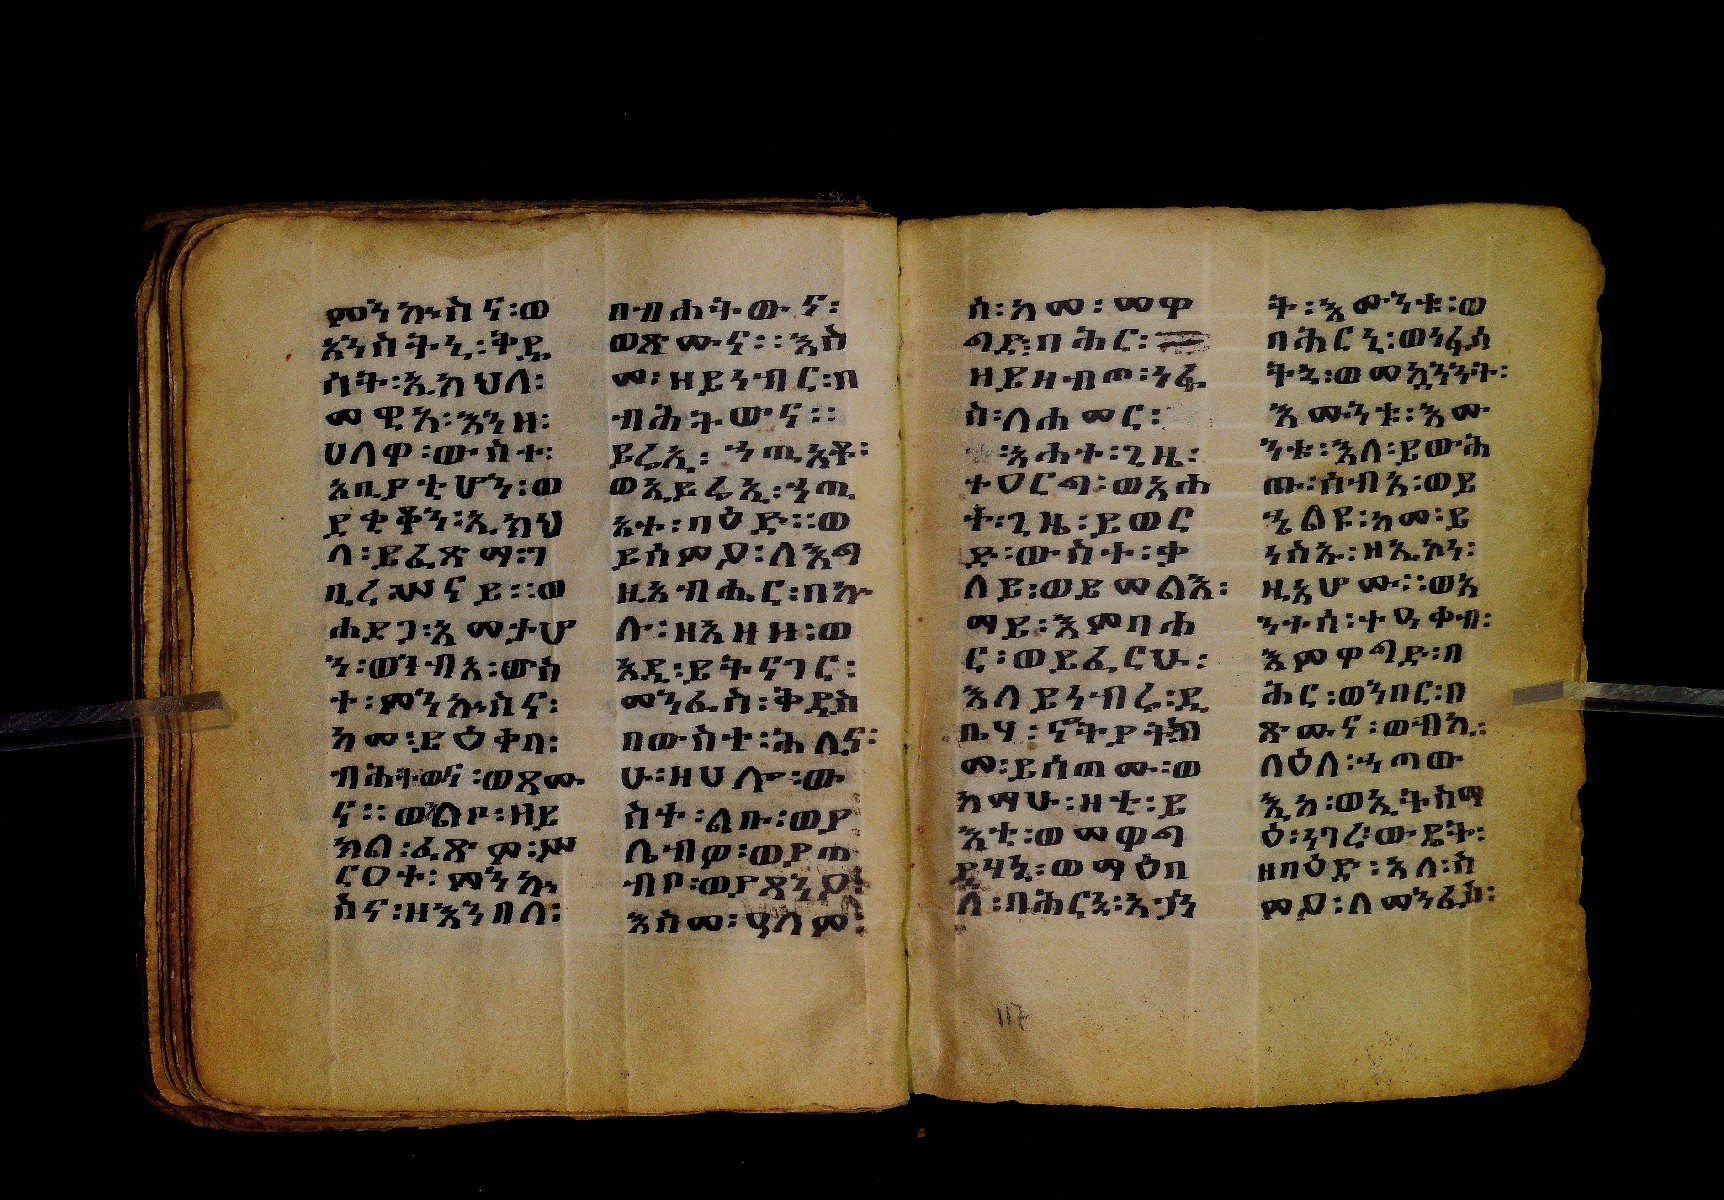 ምንኵስና፡ወ
አንስትኒ፡ቅዱ
ሳት፡ኢክህለ፡
መዊአ፡እንዘ፡
ሀለዋ፡ውስተ፡
አቢያቲሆን፡ወ
ደቂቆን፡ኢክህ
ላ፡ይፈጽማ፡ገ
ቢረ፡ሠናይ፡፡ወ
ሐይጋ፡አመታሆ
ን፡ወገብአ፡ውስ
ተ፡ምንኵስና፡
አመ፡ይዕቀብ፡
ብሕትውና፡ወጾሙ
ና፡፡ወልቦ፡ዘይ
ክል፡ፈጽሞ፡ሥ
ርዐተ፡ምንኵ
ስና፡ዘእንበለ፡
በብሐትውና፡
ወጽሙና፡፡እስ
መ፡ዘይነብር፡በ
ብሕትውና፡፡
ይሬኢ፡ኀጢአቶ፡
ወኢይሬኢ፡ኀጢ
አተ፡ባዕድ፡፡ወ
ይሰምያ፡ለእግ
ዚአብሔር፡በኵ
ሉ፡ዘአዘዘ፡ወ
አዲ፡ይትናገር፡
መንፈስ፡ቅዱስ
በውስተ፡ሕሊና፡
ሁ፡ዘሀሎ፡ው
ስተ፡ልቡ፡ወያ
ሌብዎ፡ወያጠ
ብቦ፡ወያጸንዖ፡
እስመ፡ዓለም፡
ሰ፡ከመ፡መዋ
ግድ፡ባሕር፡
ዘይዘብጦ፡ነፈ
ስ፡ለሐመር፡
አሐተ፡ጊዜ፡
ተዐርግ፡ወአሐ
ተ፡ጊዜ፡ይወር
ድ፡ውስተ፡ቀ
ላይ፡ወይመልእ፡
ማይ፡እምባሕ
ር፡ወይፈርሁ፡
እለ፡ይነብሩ፡ዲ
ቤሃ፡ኖትያትከ
መ፡ይሰጠሙ፡ወ
ከማሁ፡ዘቲ፡ይ
እቲ፡ወመዋግ
ዲሃኒ፡ወማዕበ
ለ፡ባሕርኒ፡አኃ
ት፡እሙንቱ፡ወ
ባሕርኒ፡ወነፋሳ
ትኒ፡ወመኳንንት፡
እሙንቱ፡እሙ
ንቱ፡እለ፡ይውሕ
ጡ፡ሰብአ፡ወይ
ኄልዩ፡ከመ፡ይ
ንስኡ፡ዘኢኮነ፡
ዚአሆሙ፡፡ወአ
ንተሰ፡ተዓቀብ፡
እምዋግድ፡ባ
ሕር፡ወንበር፡በ
ጽሙና፡ወብኪ፡
ላዕለ፡ኀጣው
ኢከ፡ወኢትስማ
ዕ፡ነገረ፡ውዴት፡
ዘባዕድ፡እለ፡ስ
ምዖ፡ለመንፈስ፡
117